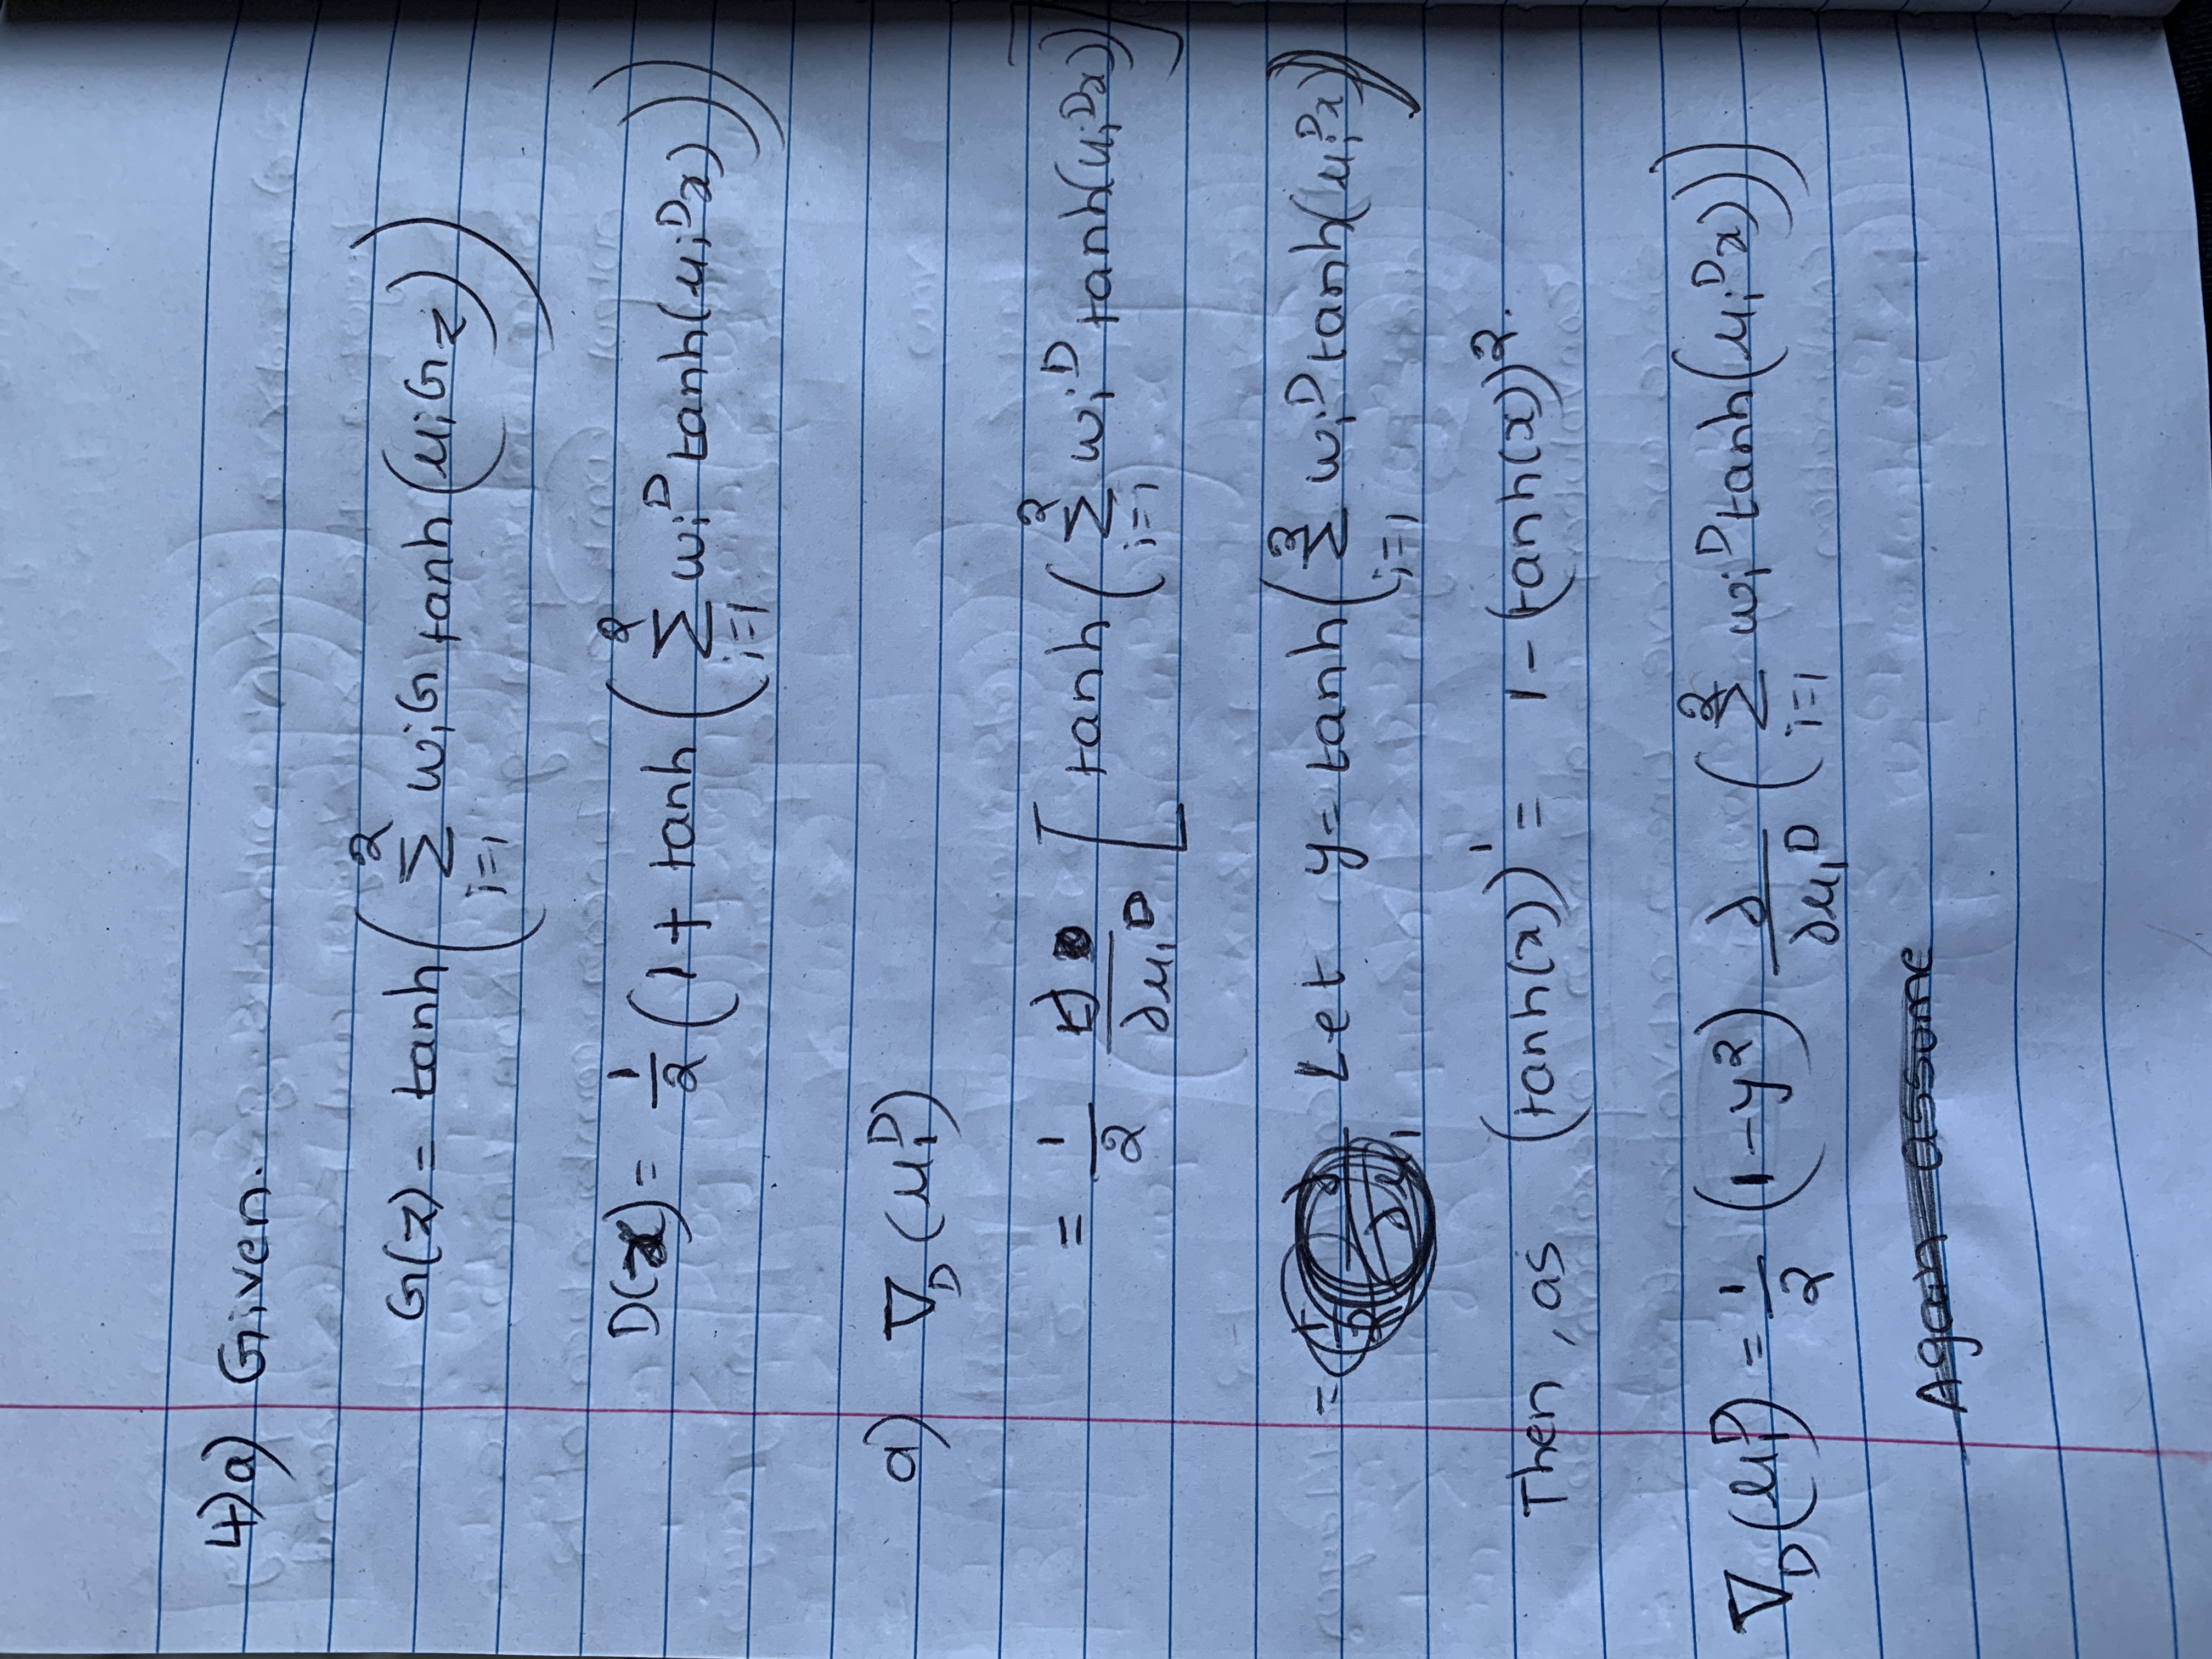 4)a) Given.
G(z) = tanh( Σ_{i=1}^{2} w_i G tanh(u_i G z))
D(x) = 1/2 (1 + tanh( Σ_{i=1}^{2} w_i^D tanh(u_i^D x)))
a) ∇_D (u_1^D)
= 1/2 ∂/∂u_1^D [ tanh( Σ_{i=1}^{2} w_i^D tanh(u_i^D x)) ]
= Let y = tanh( Σ_{i=1}^{2} w_i^D tanh(u_i^D x))
Then, as (tanh(x))' = 1 - (tanh(x))^2.
∇_D (u_1^D) = 1/2 (1 - y^2) ∂/∂u_1^D ( Σ_{i=1}^{2} w_i^D tanh(u_i^D x))
Again assume